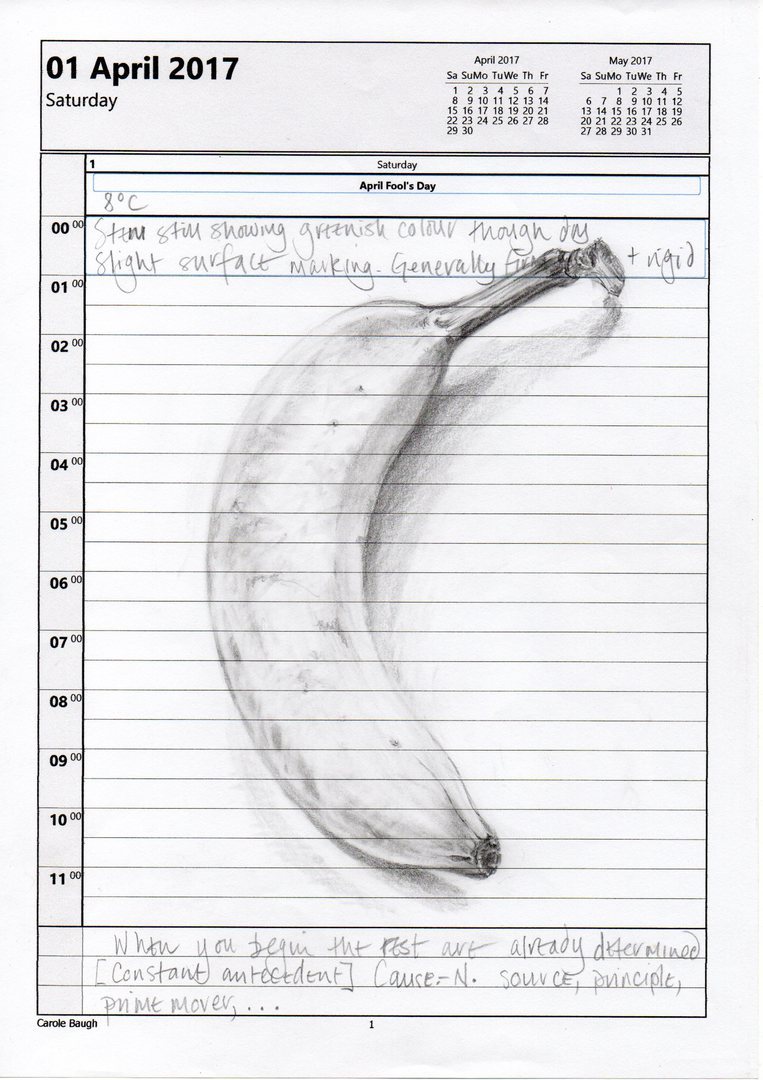 01 April 2017
Saturday
April 2017
Sa Su Mo Tu We Th Fr
1 2 3 4 5 6 7
8 9 10 11 12 13 14
15 16 17 18 19 20 21
22 23 24 25 26 27 28
29 30
May 2017
Sa Su Mo Tu We Th Fr
1 2 3 4 5
6 7 8 9 10 11 12
13 14 15 16 17 18 19
20 21 22 23 24 25 26
27 28 29 30 31
1 Saturday
April Fool's Day
8°C
00 00
Stem still showing greenish colour though dry
slight surface marking. Generally firm + rigid
01 00
02 00
03 00
04 00
05 00
06 00
07 00
08 00
09 00
10 00
11 00
When you begin the rest are already determined
[Constant antecedent] Cause:- N. source, principle,
prime mover, ...
Carole Baugh 1